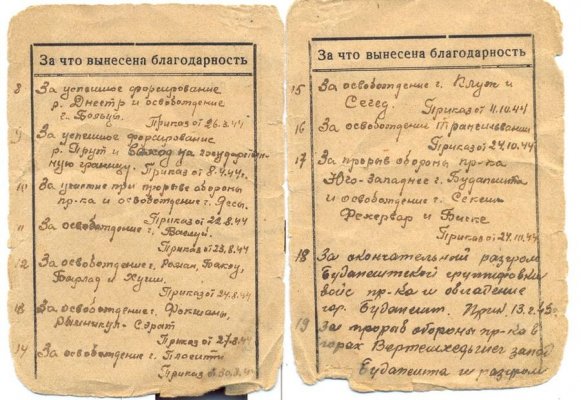 За что вынесена благодарность
8 За успешное форсирование
р. Днестр и освобождение
г. Бельцы.
Приказ от 26.3.44
9 За успешное форсирование
р. Прут и выход на государствен-
ную границу. Приказ от 8.4.44г.
10 За участие при прорыве обороны
пр-ка и освобождение г. Яссы.
Приказ от 22.8.44
11 За освобождение г. Васлуй.
Приказ от 23.8.44
12 За освобождение г. Роман, Бакэу,
Бырлад и Хуши.
Приказ от 24.8.44
13 За освобождение г. Фокшаны,
Рымникул-Сэрат
Приказ от 27.8.44
14 За освобождение г. Плоешти
Приказ от 30.8.44
За что вынесена благодарность
15 За освобождение г. Клуж и
Сегед.
Приказ от 11.10.44
16 За освобождении Трансильвании
Приказ от 24.10.44
17 За прорыв обороны пр-ка
Юго-Западнее г. Будапешта
и освобождение г. Секеш
Фехервар и Бичке
Приказ от 24.10.44
18 За окончательный разгром
Будапештской группировки
войс пр-ка и овладение
гор. Будапешт. 13.2.45г.
19 За прорыв обороны пр-ка в
горах Вертешхедьшег запад
Будапешта и разгром